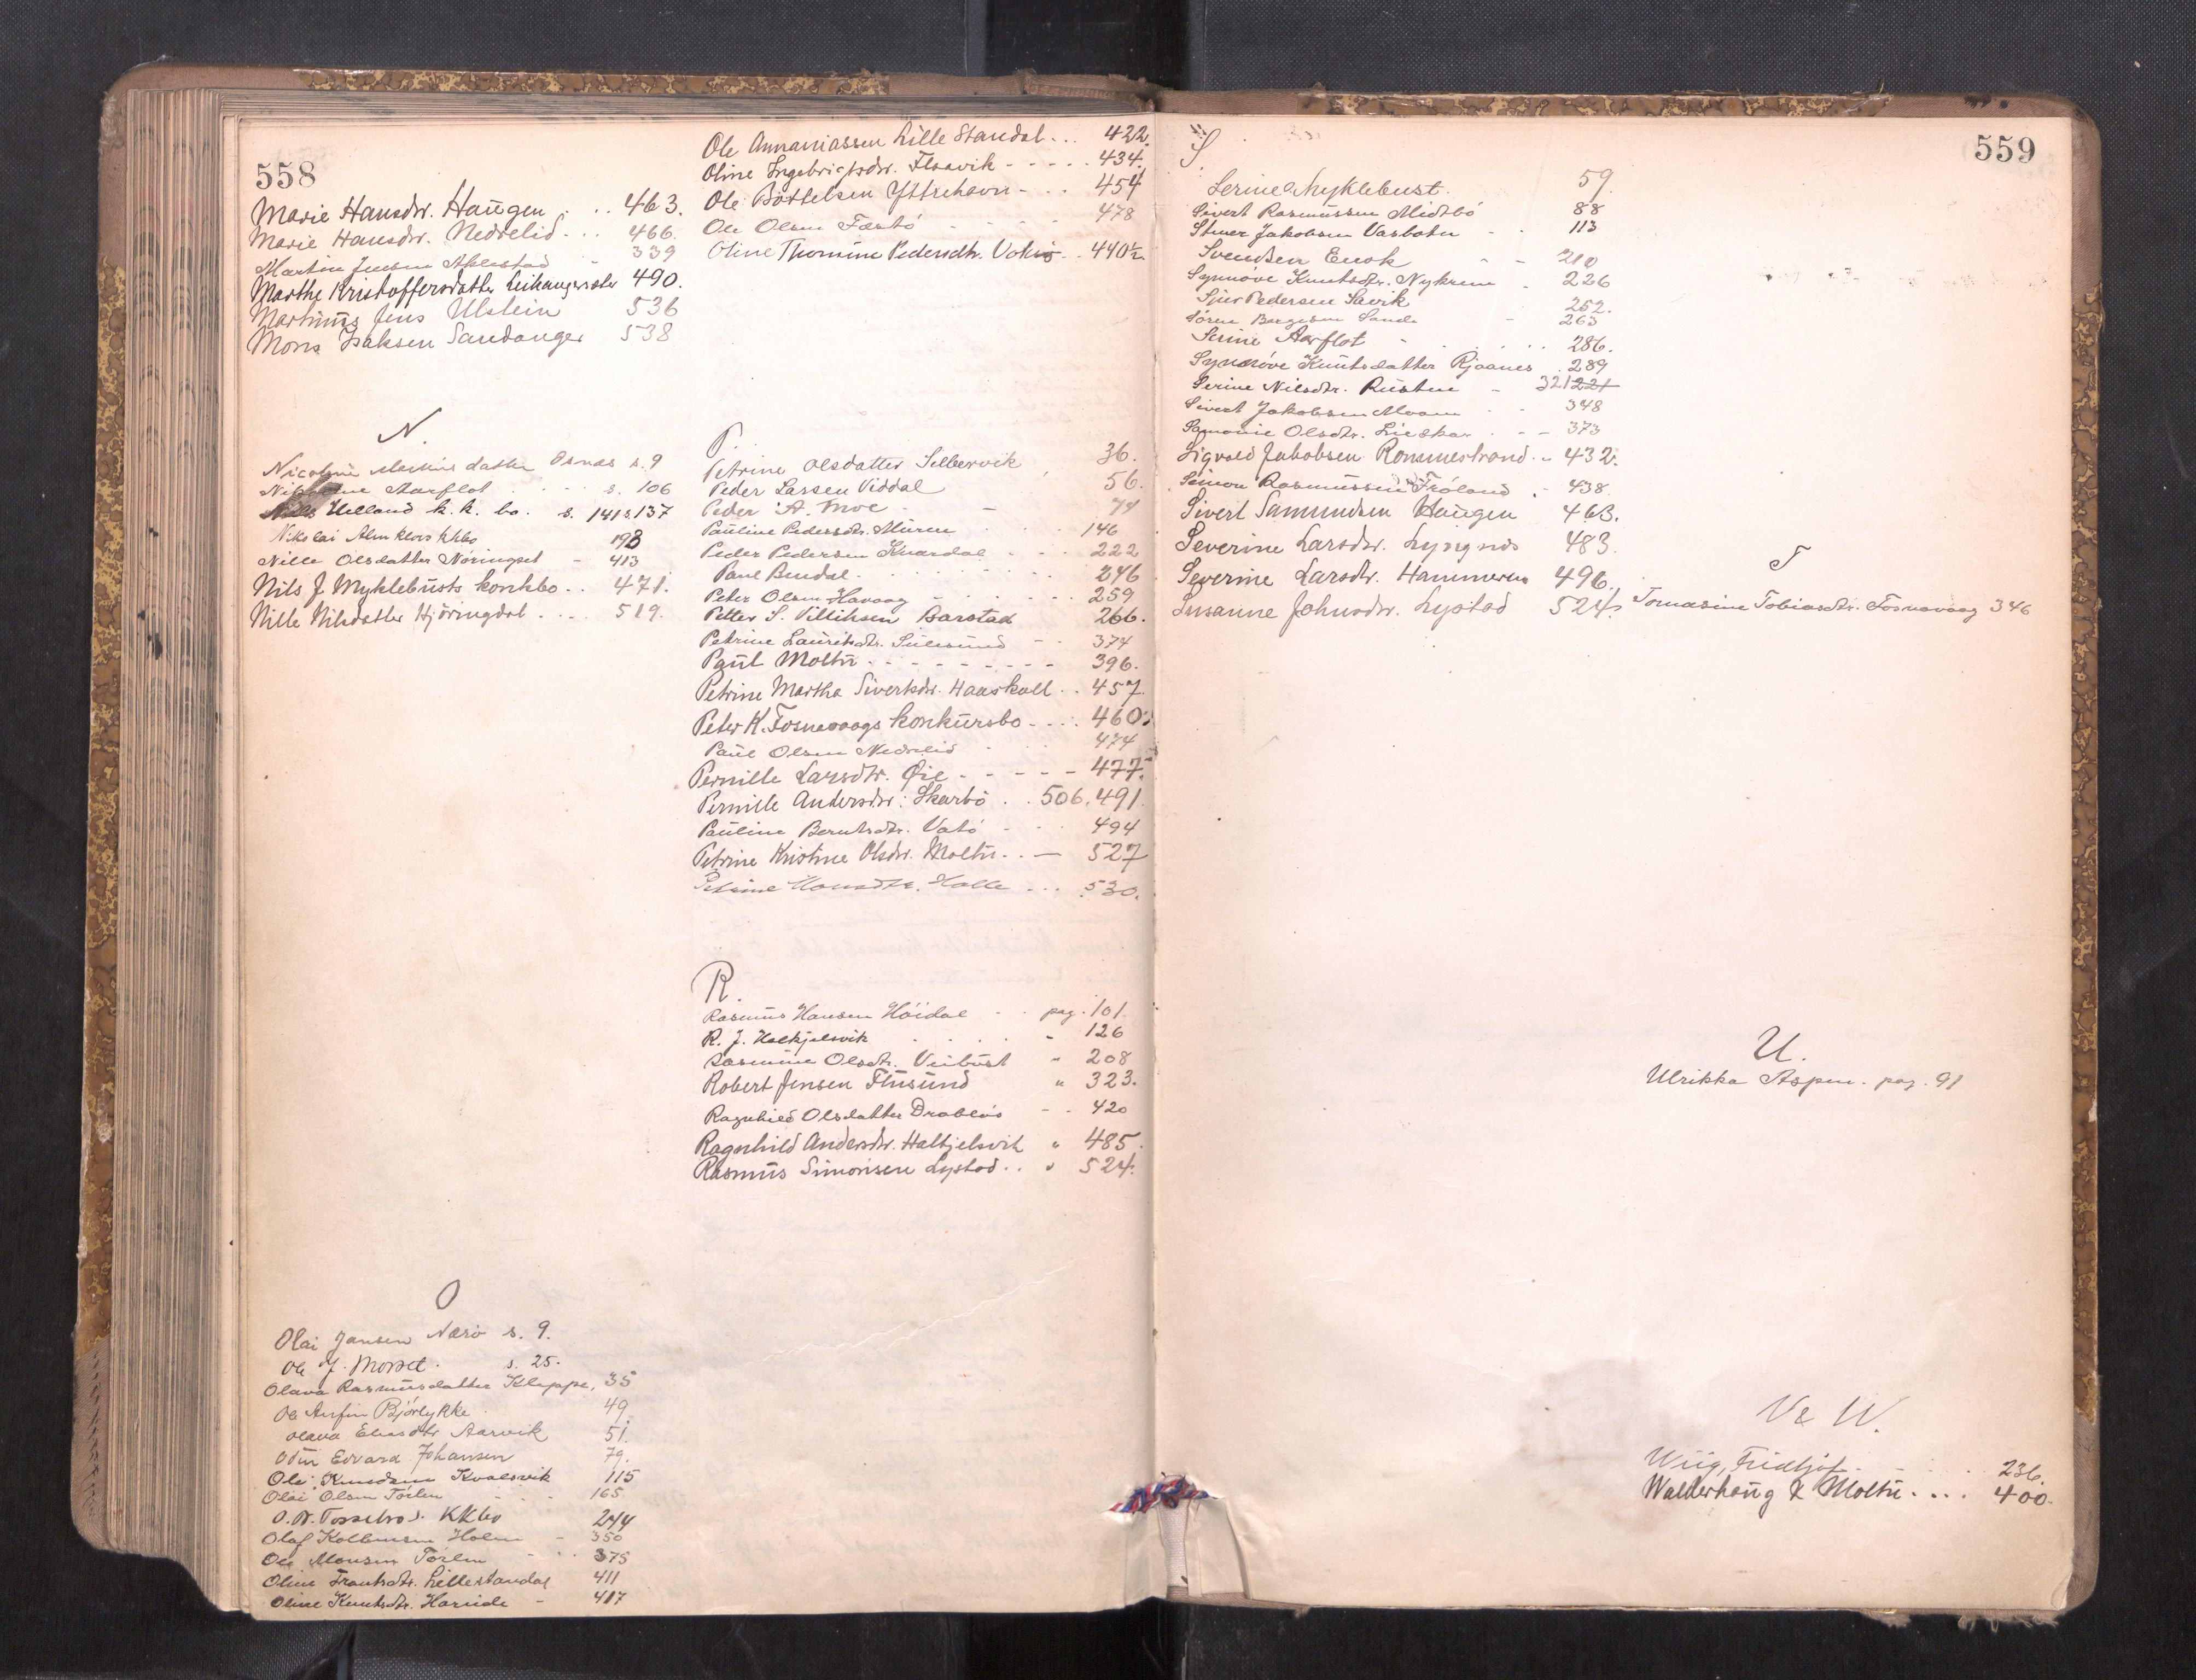 558
Marie Hansdtr. Haugen . . . 463.
Marie Hansdtr. Nedrelid . . . 466.
Martin Jensen Aklestad 339
Marthe Kristoffersdatter Leikangersæter 490.
Martinus Jens Ulstein 536
Mons Isaksen Sandanger 538
N.
Nicoline datter Osnes s. 9
Aarflot s. 106
Nils Helland k. k. bo. s. 141 s. 137
Nikolai Almklovs kkbo 198
Nille Olsdatter Nöringset - 413
Nils J Myklebusts konkbo . . 471.
Nille Nilsdatter Hjöringdal . . . 519.
O
Olai Jansen Nærö s. 9.
Ole J. Morset. s. 25.
Olava Rasmusdatter Kleppe, 35
Ole Arfin Björlykke 49.
Olava Eliasdtr Aarvik 51.
Odin Edvard Johansen 79.
Ole Knudsen Kvalsvik 115
Olai Olsen Törlen 165
O. N. Tosselros. KKbo 244
Olaf Kolbensen Holm - 350
Ole Monsen Törlen - 375
Oline Frantsdtr. Lillestandal 411
Oline Knutsdtr. Hareide - 417
Ole Annaniassen Lille Standal . . . 422.
Oline Ingebrigtsdtr. Flaavik - - - - - 434.
Ole Bottelsen Yttrehavn - . . 454
Ole Olsen Fæstö - - - - 478
Oline Thomine Pedersdtr. Voksø . . 440½
P.
Petrine Olsdatter Selbervik 36.
Peder Larsen Viddal 56.
Peder A. Moe - - 74
Pauline Pedersdtr. Muren 146
Peder Pedersen Knardal - - - 222
Paul Bendal . . . . . . 246
Peter Olsen Havaag - - . . . 259
Petter S. Villiksen Barstad 266.
Petrine Lauritsdtr. Sulesund - - 374
Paul Moltu . - - - - - - - - - 396.
Petrine Martha Sivertsdtr. Haaskoll . . 457.
Peter K. Fosnavaags konkursbo - . . . 460.
Paul Olsen Nedrelid 474
Pernille Larsdtr. Øie - - - - - 477.
Pernille Andersdtr. Skarbö . . 506. 491.
Pauline Berntsdtr. Vatö - - 494
Petrine Kristine Olsdtr. Moltu . . — 527
Petrine Hansdtr. Holle . . . 530.
R.
Rasmus Hansen Höidal - . pag. 101.
R. J. Halkjelsvik . . . . - 126
Rasmine Olsdtr. Veibust - 208
Robert Jensen Flusund " 323.
Ragnhild Olsdatter Drablös - - 420
Ragnhild Andersdtr. Halkjelsvik " 485.
Rasmus Simonsen Lystad . . " 524.
559
S.
Serine Myklebust. 59.
Sivert Rasmussen Midtbö 88
Steuer Jakobsen Vasbotn - - 113
Svendsen Enok - - 210
Synnöve Knutsdtr. Nykrem . 226
Sjur Pedersen Savik 252.
Sören Sande - 263
Serine Aarflot - . . . . 286.
Synnöve Knutsdatter Rjaanes . 289
Serine Nilsdtr. Rusten - 321 221
Sivert Jakobsen Moam - - 348
Samonie Olsdtr. Lieskar . - - 373
Sigvald Jakobsen Rommestrand . . 432.
Simon Rasmussen Fröland . - 438.
Sivert Samundsen Haugen 463.
Severine Larsdtr. Lyngnes 483.
Severine Larsdtr. Hammeren 496.
Susanne Johnsdtr. Lystad 524.
T
Tomasine Tobiasdtr. Fosnavaag 346
U.
Ulrikka Aspen. pag. 91
V & W.
Wiig, Fridtjof . - . . . 236.
Walderhaug & Moltu . . . . 400.